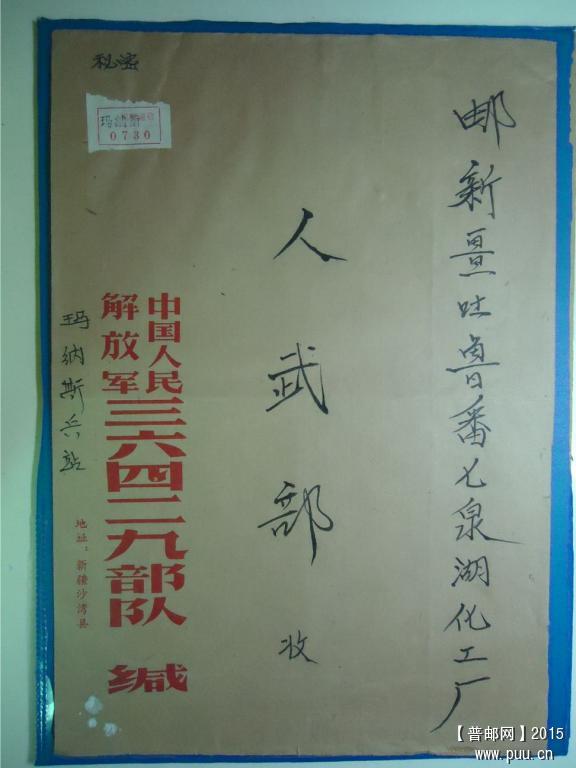 秘密
玛纳斯
0730
邮新畺吐鲁番七泉湖化工厂
人武部 收
中国人民
解放军
三六四二九部队 缄
玛纳斯兵站
地址：新疆沙湾县
【普邮网】2015
www.puu.cn